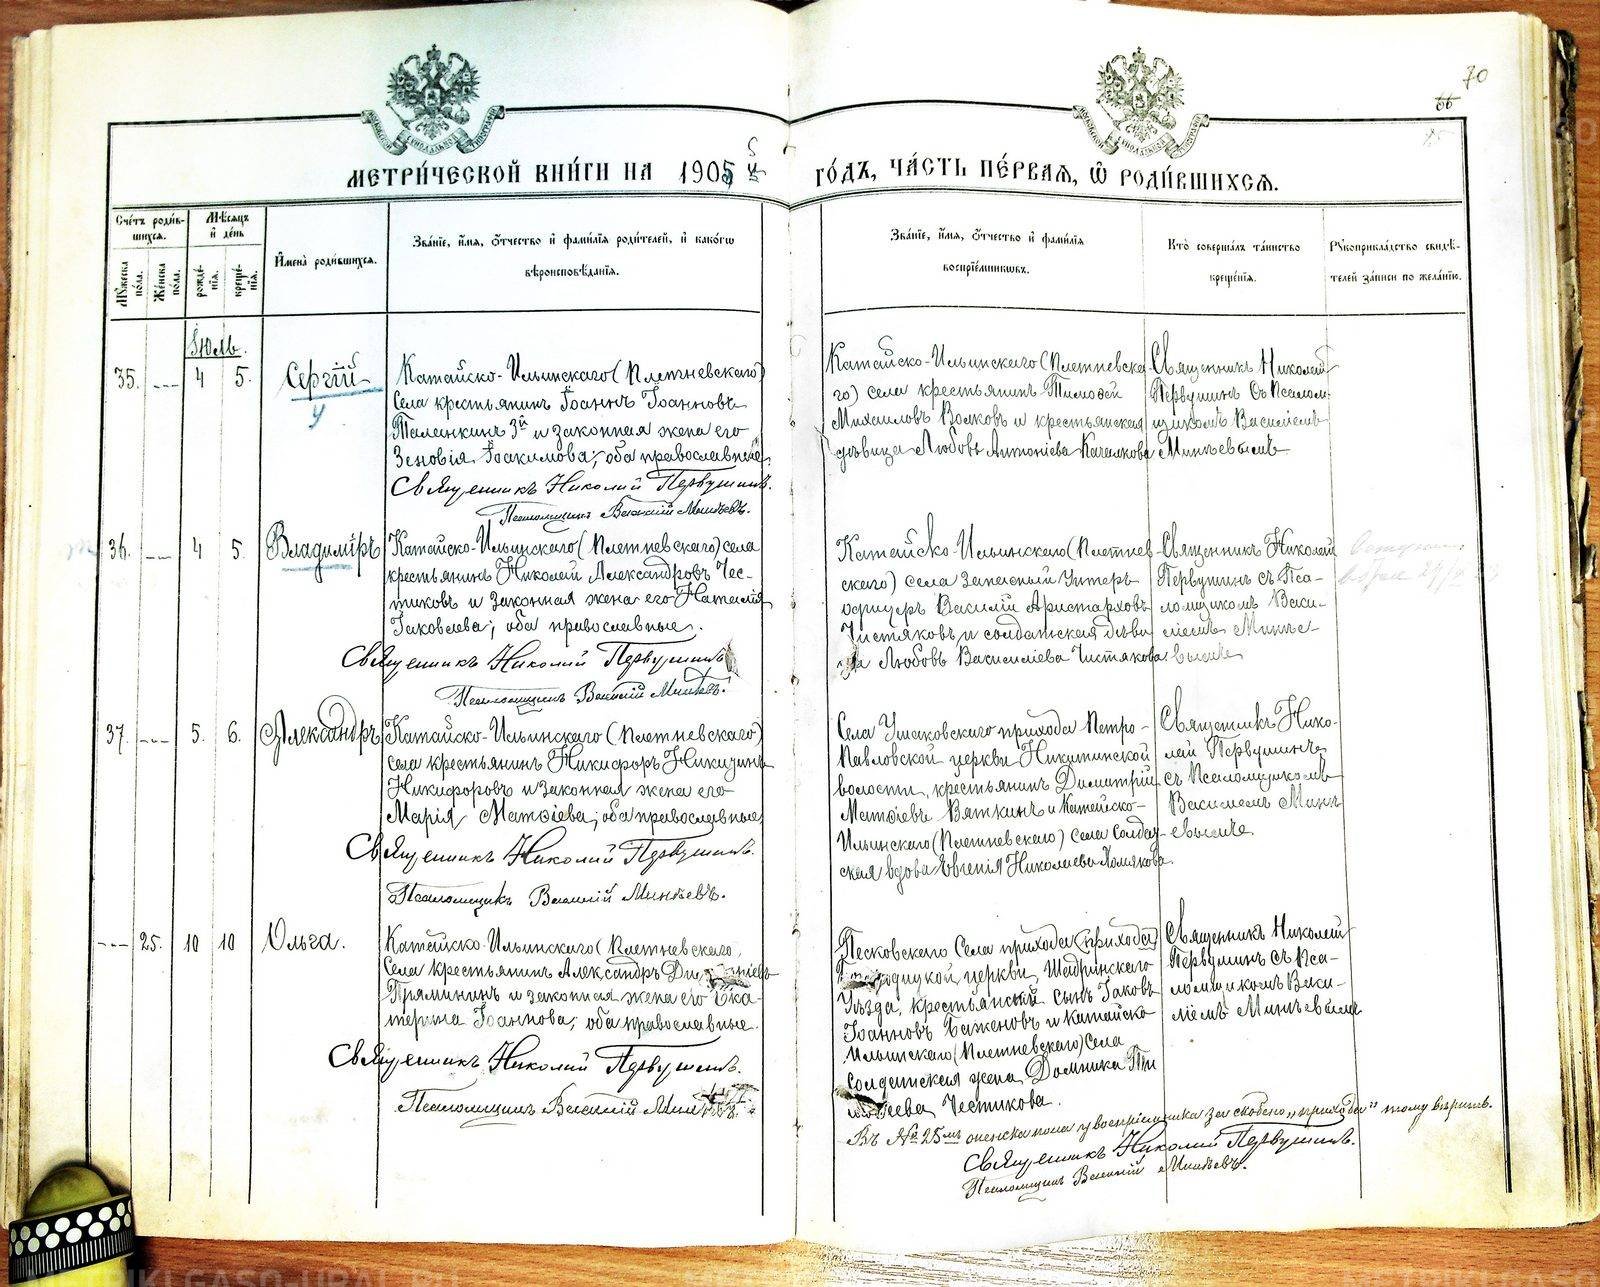 70
66
МОСКОВСКОЙ СИНОДАЛЬНОЙ ТИПОГРАФІИ
МОСКОВСКОЙ СИНОДАЛЬНОЙ ТИПОГРАФІИ
МЕТРИ́ЧЕСКОЙ КНИ́ГИ НА 1905 й
ГО́ДЪ, ЧА́СТЬ ПЕ́РВАЯ, Ѡ РОДИ́ВШИХСЯ.
Сче́тъ роди́в-
шихся.
Мꙋ́жеска по́ла.
Же́нска по́ла.
Мѣ́сяцъ
и҆ де́нь
рожде́-
нїѧ.
креще́-
нїѧ.
И҆мена̀ роди́вшихся.
Зва́нїе, и҆́мя, ѻ҆́тчество и҆ фами́лїя роди́телей, и҆ како́гѡ
вѣроисповѣ́данїя.
Зва́нїе, и҆́мя, ѻ҆́тчество и҆ фами́лїя
воспрїе́мникѡвъ.
Кто̀ соверша́лъ та́инство
креще́нїя.
Рꙋкоприкла́дство свидѣ́-
телей за́писи по жела́нїю.
Іюль.
35. --- 4 5. Сергій
у
Катайско-Ильинскаго (Плетневскаго)
села крестьянинъ Іоаннъ Іоанновъ
Таленкинъ 3й и законная жена его
Зеновія Іоакимова; оба православные.
Священникъ Николай Первушинъ.
Псаломщикъ Василій Минѣевъ.
Катайско-Ильинскаго (Плетневска-
го) села крестьянинъ Тимофей
Михаиловъ Волковъ и крестьянская
дѣвица Любовь Антоніева Качалкова
Священникъ Николай
Первушинъ съ Псалом-
щикомъ Василіемъ
Минѣевымъ
36. --- 4 5. Владиміръ
Катайско-Ильинскаго (Плетневскаго) села
крестьянинъ Николай Александровъ Чес-
тиковъ и законная жена его Наталія
Іаковлева; оба православные.
Священникъ Николай Первушинъ
Псаломщикъ Василій Минѣевъ.
Катайско-Ильинскаго (Плетнев-
скаго) села запасный Унтеръ
офицеръ Василій Аристарховъ
Чистяковъ и солдатская дѣви-
ца Любовь Василіева Чистякова
Священникъ Николай
Первушинъ съ Пса-
ломщикомъ Васи-
ліемъ Минѣе-
вымъ
37. --- 5. 6. Александръ
Катайско-Ильинскаго (Плетневскаго)
села крестьянинъ Никифоръ Никитинъ
Никифоровъ и законная жена его
Марія Матѳіева; оба православные
Священникъ Николай Первушинъ.
Псаломщикъ Василій Минѣевъ.
Села Ушаковскаго прихода Петро-
Павловской церкви Никитинской
волости, крестьянинъ Димитрій
Матѳіевъ Вяткинъ и Катайско-
Ильинскаго (Плетневскаго) села Солдат-
ская вдова Евгенія Николаева Хомякова
Священникъ Нико-
лай Первушинъ
съ Псаломщикомъ
Василіемъ Минѣ-
евымъ
--- 25. 10 10 Ольга.
Катайско-Ильинскаго (Плетневскаго)
Села крестьянинъ Александръ
Пряминъ и законная жена его Ека-
терина Іоаннова; оба православные.
Священникъ Николай Первушинъ.
Псаломщикъ Василій Минѣевъ.
Песковскаго Села прихода (прихода)
Богородицкой церкви, Шадринскаго
Уѣзда, крестьянскій сынъ Іаковъ
Іоанновъ Баженовъ и Катайско
Ильинскаго (Плетневскаго) села
Солдатская жена Домника Ти
моѳеева Честикова.
Священникъ Николай
Первушинъ съ Пса-
ломщикомъ Васи-
ліемъ Минѣевымъ
Въ № 25мъ женска пола у воспріемника за скобено „прихода“ тому вѣрить.
Священникъ Николай Первушинъ.
Псаломщикъ Василій Минѣевъ.
METRIKI.GASO-URAL.RU